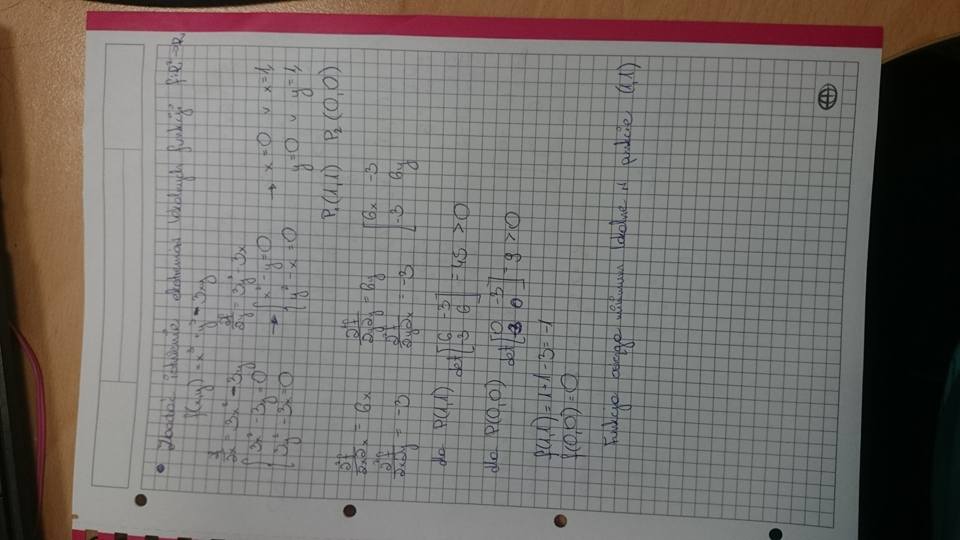 • Zbadać istnienie ekstremów lokalnych funkcji f: R² → R
f(x,y) = x³ + y³ - 3xy
∂f/∂x = 3x² - 3y ∂f/∂y = 3y² - 3x
{3x² - 3y = 0 → {x² - y = 0 → x = 0 ∨ x = 1,
{3y² - 3x = 0 {y² - x = 0 y = 0 ∨ y = 1,
P₁(1,1) P₂(0,0)
∂²f/∂x∂x = 6x ∂²f/∂y∂y = 6y [6x -3
∂²f/∂x∂y = -3 ∂²f/∂y∂x = -3 -3 6y]
dla P(1,1) det [6 -3
-3 6] = 45 > 0
dla P(0,0) det [0 -3
-3 0] = 9 > 0
f(1,1) = 1+1-3 = -1
f(0,0) = 0
Funkcja osiąga minimum lokalne w punkcie (1,1)